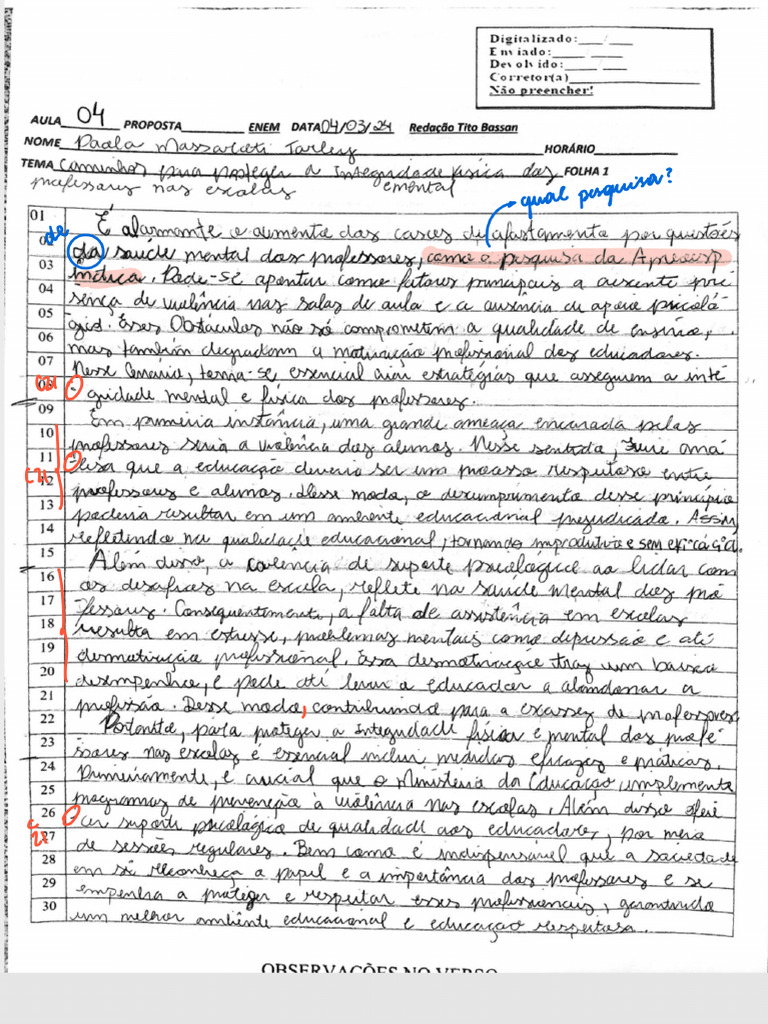 Digitalizado:___/___
Enviado:___/___
Devolvido:___/___
Corretor(a)
Não preencher!
AULA 04 PROPOSTA ENEM DATA 04/03/24 Redação Tito Bassan
NOME Paola HORÁRIO
TEMA Caminhos para proteger a Integridade física dos FOLHA 1
professores nas escolas e mental
qual pesquisa?
01 É alarmante o aumento dos casos de afastamento por questões
de
02 da saúde mental dos professores, como a pesquisa da Apeoesp
03 indica. Pode-se apontar como fatores principais a crescente pre
04 sença de violência nas salas de aula e a ausência de apoio psicoló
05 gico. Esses Obstáculos não só comprometem a qualidade de ensino,
06 mas também degradam a motivação profissional dos educadores.
07 Nesse Cenário, torna-se essencial criar estratégias que assegurem a inte
08 gridade mental e física dos professores.
09 Em primeira instância, uma grande ameaça encarada pelos
10 professores seria a violência dos alunos. Nesse sentido,
11 lisa que a educação deveria ser um processo respeitoso entre
12 professores e alunos. Desse modo, o descumprimento desse princípio
13 poderia resultar em um ambiente educacional prejudicado. Assim
14 refletindo na qualidade educacional, tornando improdutivo e sem eficácia.
15 Além disso, a carência de suporte psicológico ao lidar com
16 os desafios na escola, reflete na saúde mental dos pro
17 fessores. Consequentemente, a falta de assistência em escolas
18 resulta em estresse, problemas mentais como depressão e até
19 desmotivação profissional. Essa desmotivação traz um baixo
20 desempenho, e pode até levar o educador a abandonar a
21 profissão. Desse modo, contribuindo para a escassez de professores
22 Portanto, para proteger a Integridade física e mental dos profe
23 ssores nas escolas é essencial incluir medidas eficazes e práticas.
24 Primeiramente, é crucial que o Ministério da Educação, implemente
25 programas de prevenção à violência nas escolas. Além disso ofere
26 cer suporte psicológico de qualidade aos educadores, por meio
27 de sessões regulares. Bem como é indispensável que a sociedade
28 em si reconheça o papel e a importância dos professores e se
29 empenha a proteger e respeitar esses profissionais, garantindo
30 um melhor ambiente educacional e educação respeitosa.
OBSERVAÇÕES NO VERSO